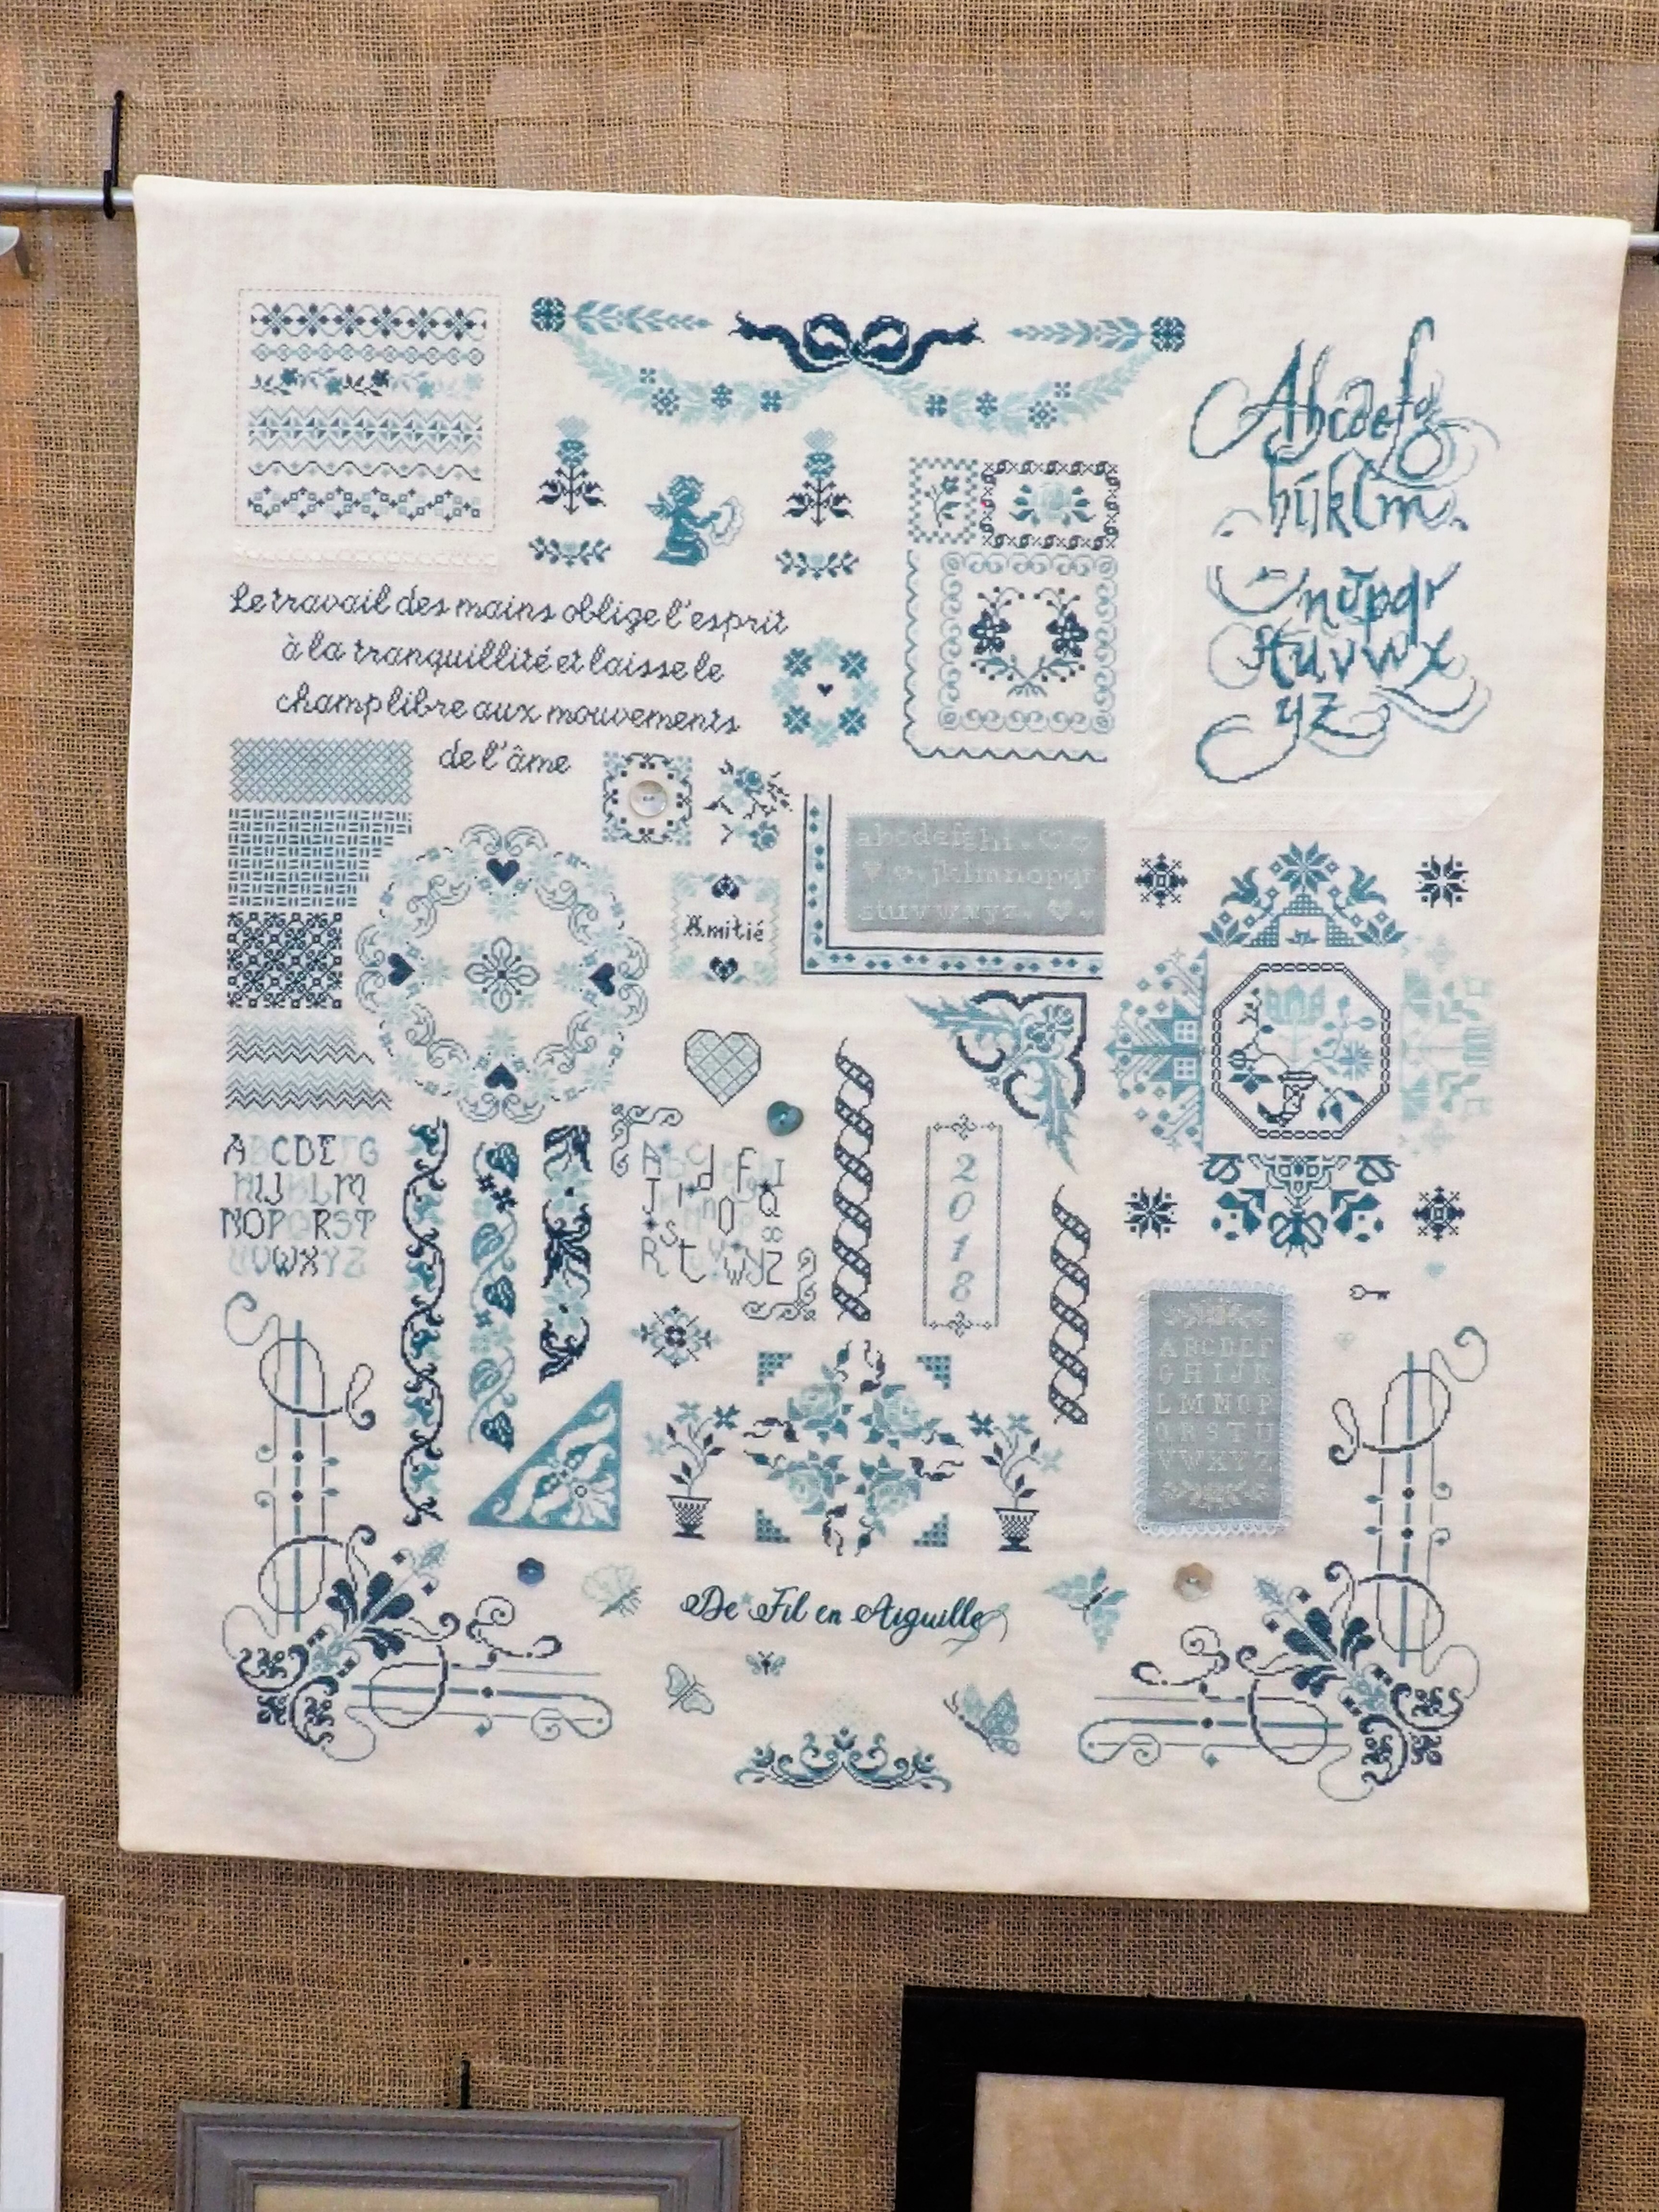 Abcdefg
hijklm
nopqr
stuvwx
yz
Le travail des mains oblige l'esprit
à la tranquillité et laisse le
champ libre aux mouvements
de l'âme
abcdefghi
jklmnopqr
stuvwxyz
Amitié
ABCDEFG
HIJKLM
NOPQRST
UVWXYZ
2
0
1
8
ABCDEF
GHIJK
LMNOP
QRSTU
VWXYZ
De Fil en Aiguille